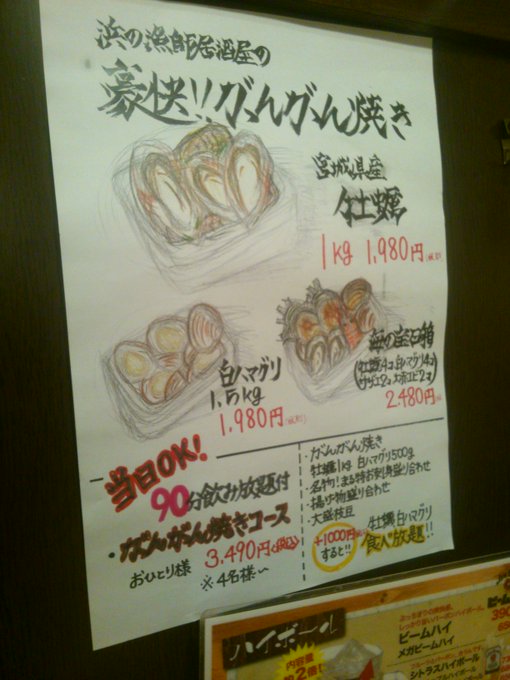 浜の漁師居酒屋の
豪快!!がんがん焼き
宮城県産
牡蠣
1kg 1,980円(税別)
白ハマグリ
1.5kg
1,980円(税別)
海の宝石箱
(牡蠣4コ 白ハマグリ4コ
サザエ2コ 大赤エビ2コ)
2,480円
当日OK!
90分飲み放題付
・がんがん焼きコース
3,490円(税込)
おひとり様 ※4名様~
・がんがん焼き
牡蠣1kg 白ハマグリ500g
・名物!まる特お刺身盛り合わせ
・揚げ物盛り合わせ
・大盛枝豆
+1000円
すると!!
牡蠣、白ハマグリ
食べ放題!!
ハイボール
内容量
約2倍!
ビームハイ
メガビームハイ
シトラスハイボール